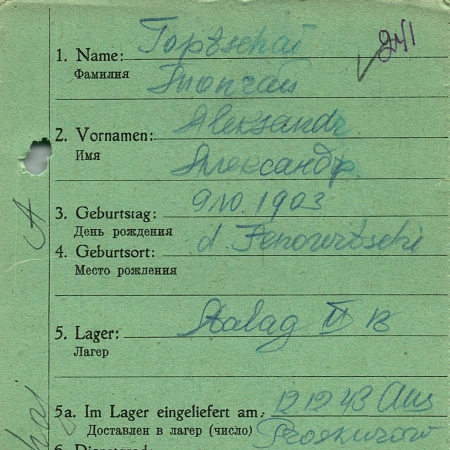 241
1. Name: Toptschai
Фамилия Топчай
2. Vornamen: Aleksandr
Имя Александр.
3. Geburtstag: 9.10.1903
День рождения
4. Geburtsort: d.
Место рождения
5. Lager: Stalag II B
Лагер
5a. Im Lager eingeliefert am: 12 12 43 Aus
Доставлен в лагер (число) Proskurow